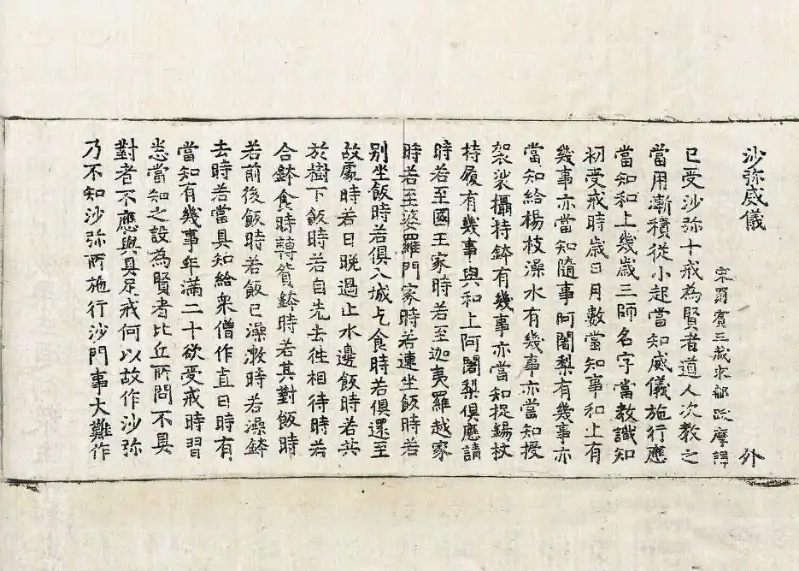 沙弥威儀 外
宋罽賓三蔵求那跋摩譯
已受沙弥十戒為賢者道人次教之
當用漸積從小起當知威儀施行應
當知和上幾歲三師名字當教識知
初受戒時歲日月數當知事和上有
幾事亦當知隨事阿闍梨有幾事亦
當知給楊枝澡水有幾事亦當知授
袈裟攝持鉢有幾事亦當知捉錫杖
持履有幾事與和上阿闍梨俱應請
時若至國王家時若至迦夷羅越家
時若至婆羅門家時若連坐飯時若
別坐飯時若俱入城乞食時若俱還至
故處時若日晚過止水邊飯時若共
於樹下飯時若自先去徃相待時若
合鉢食時轉貿鉢時若其對飯時
若前後飯時若飯已澡漱時若澡鉢
去時若當具知給衆僧作直日時有
當知有幾事年滿二十欲受戒時習
悉當知之設為賢者比丘所問不具
對者不應與具足戒何以故作沙弥
乃不知沙弥所施行沙門事大難作